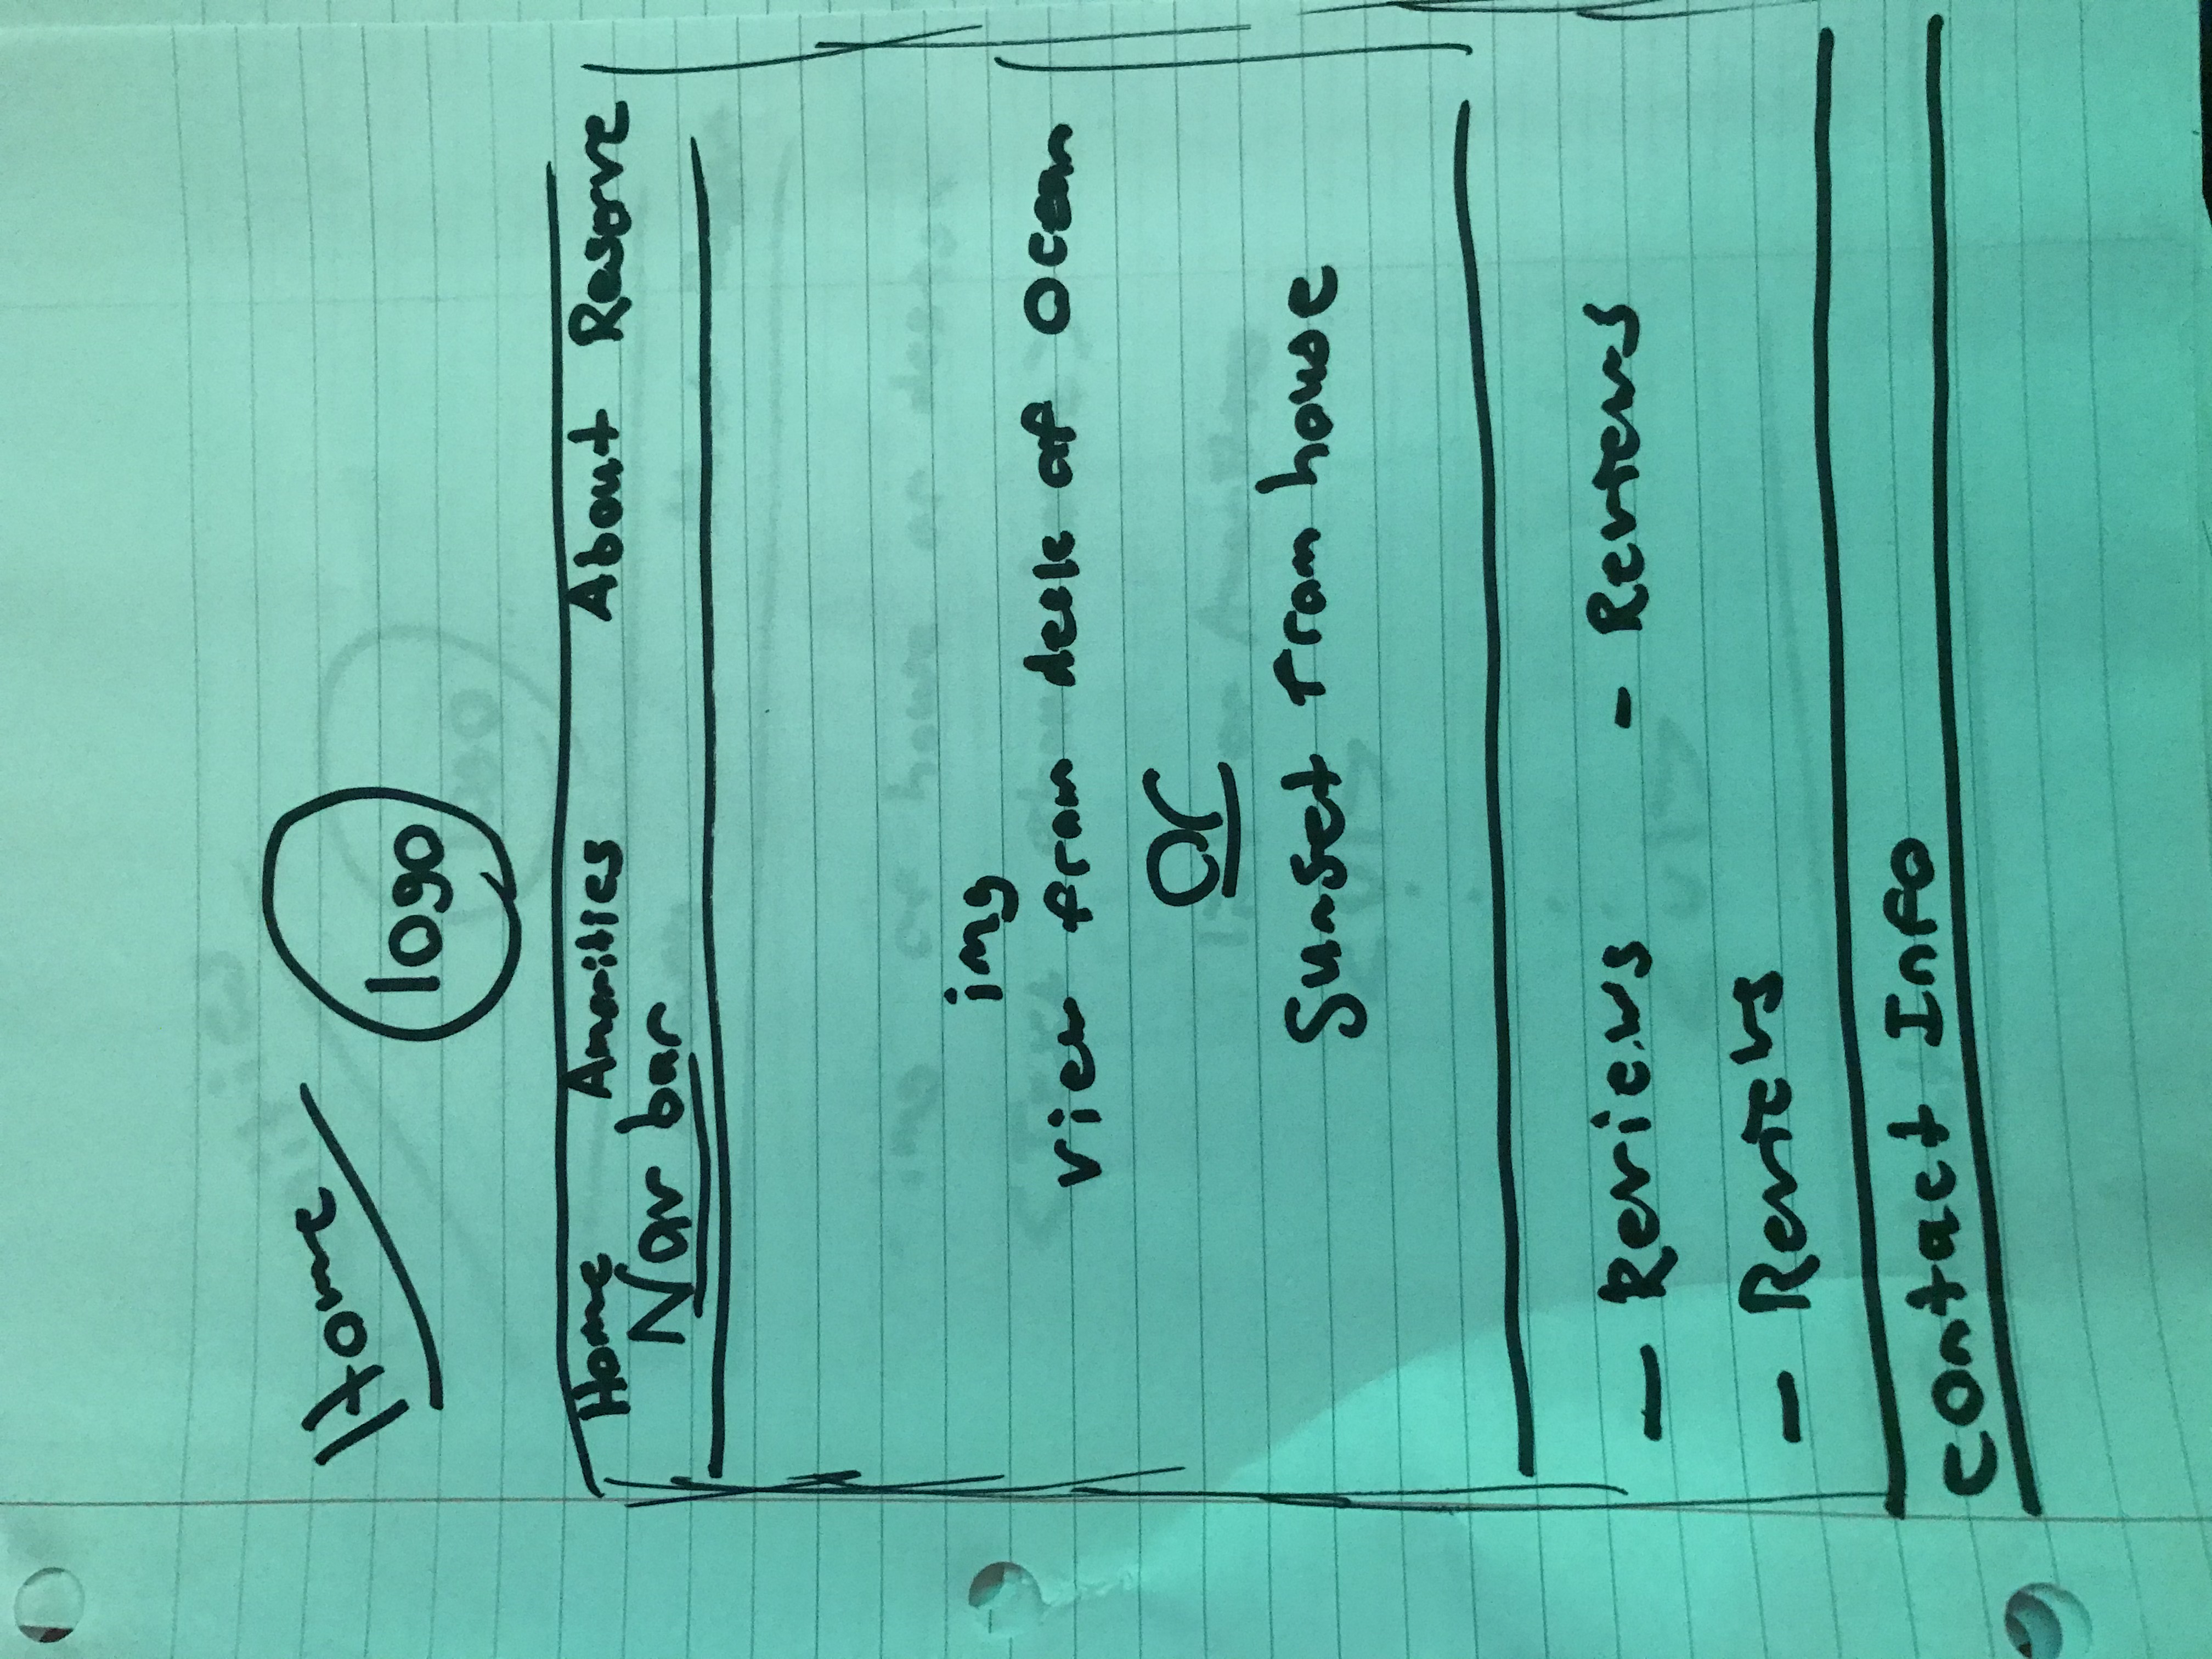 Home
logo
Home Amenities About Reserve
Nav bar
img
view from deck of Ocean
Or
Sunset from house
- Reviews - Reviews
- Reviews
Contact Info